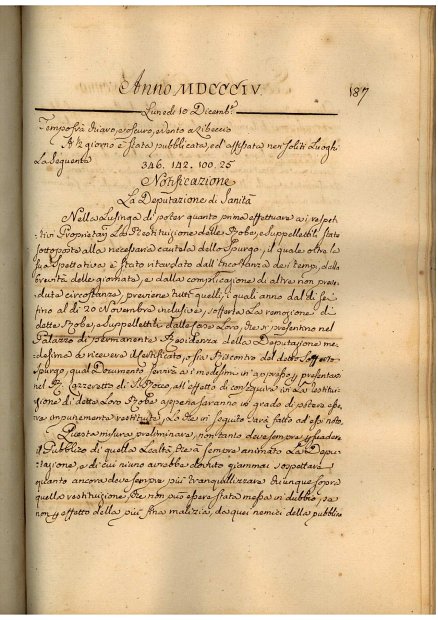 Anno MDCCCIV.
187
Lunedì 10 Dicemb.e
Tempo frà chiaro, e oscuro, e vento a Libeccio
A ½ giorno è stata pubblicata, ed affissata nei soliti Luoghi
La seguente
346. 142. 100. 25
Notificazione
La Deputazione di Sanità
Nella Lusinga di poter quanto prima effettuare ai respet-
tivi Proprietarj La Restituzione delle Robe, e Suppellettili state
sottoposte alla necessaria cautela dello Spurgo, il quale oltre la
sua Aspettativa è stato ritardato dall'Incostanza dei tempi, dalla
brevità delle giornate, e dalla complicazione di altre non preve-
dute circostanze, previene tutti quelli, i quali anno dal dì
fino al dì 20 Novembre inclusive, sofferta La remozione di
dette Robe, e Suppellettili dalle loro Case, che si presentino nel
Palazzo di permanente Residenza della Deputazione me-
desima a ricevere il certificato, o sia Riscontro del detto Sofferto
Spurgo, qual Documento servirà ai medesimi in appresso p presentarsi
nel R. Lazzeretto di S. Rocco, all'effetto di conseguire ivi La restitu-
zione di dette Loro Robe appena saranno in grado di potere esse-
re impunemente restituite, Lo che in seguito sarà fatto ad essi noto.
Questa misura preliminare, non tanto deve sempre più persuadere
il Pubblico di quella Lealtà che à sempre animato La Depu-
tazione, e di cui niuno avrebbe dovuto giammai sospettare
quanto ancora deve sempre più tranquillizzare chiunque sopra
quella restituzione, che non può essere stata messa in dubbio, se
non p effetto della più fina malizia, da quei nemici della pubblica